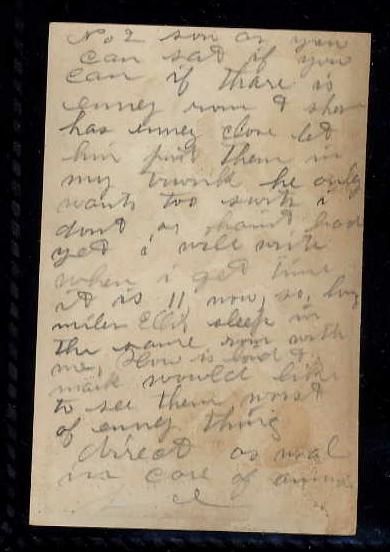 No 2 son as you
can sat if you
can if thare is
enney room &
has enney close let
him put them in
my trunk he only
wants too suits i
dont
yet i will write
when i get time
it is 11 now, so, by
miler sleep in
the same rom with
me, How is bud &
mark would like
to see them worst
of enney thing
direct as
in care of